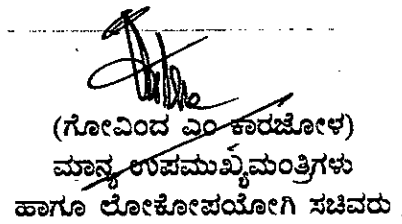 (ಗೋವಿಂದ ಎಂ ಕಾರಜೋಳ)
ಮಾನ್ಯ ಉಪಮುಖ್ಯಮಂತ್ರಿಗಳು
ಹಾಗೂ ಲೋಕೋಪಯೋಗಿ ಸಚಿವರು